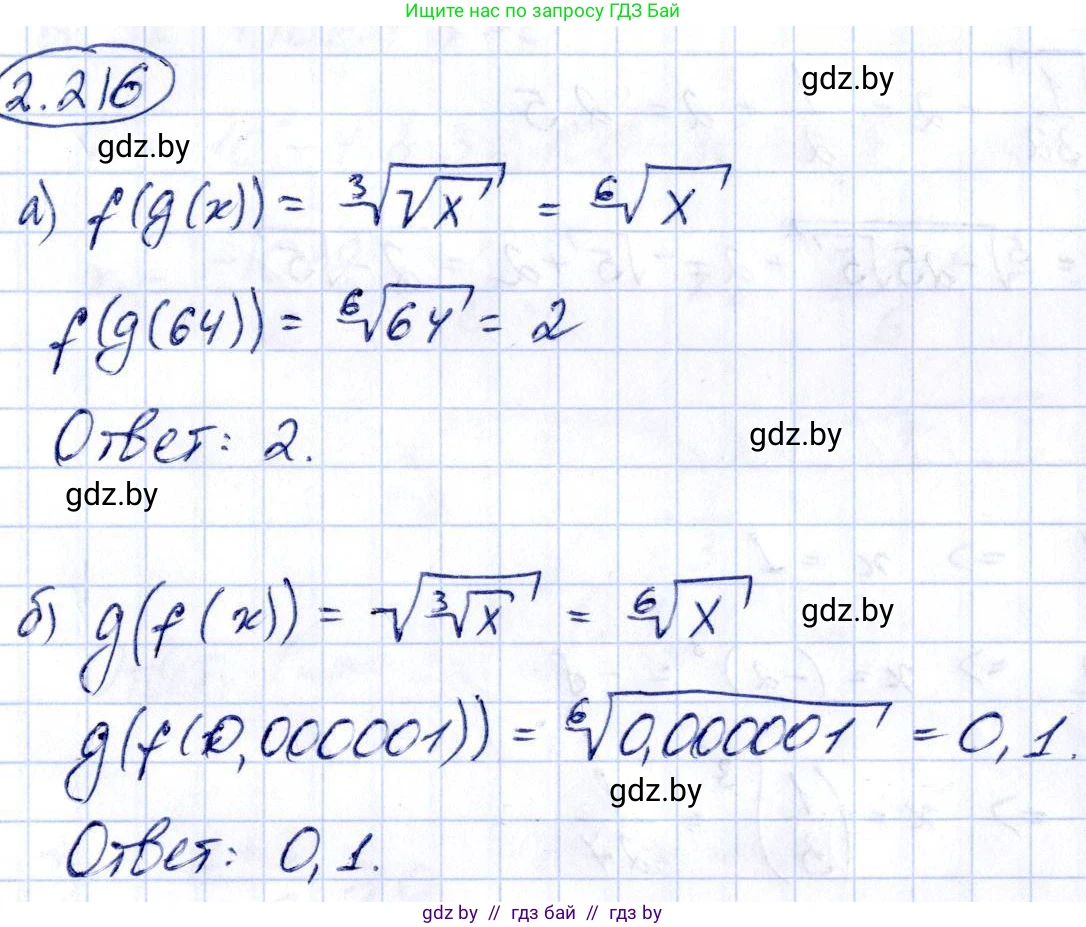 Ищите нас по запросу ГДЗ Бай
2.216
gdz.by
gdz.by
а) f(g(x)) = ∛(√x) = ⁶√x
f(g(64)) = ⁶√64 = 2
Ответ: 2.
gdz.by
gdz.by
б) g(f(x)) = √(∛x) = ⁶√x
gdz.by
g(f(0,000001)) = ⁶√0,000001 = 0,1.
gdz.by
Ответ: 0,1.
gdz by // гдз бай // гдз by